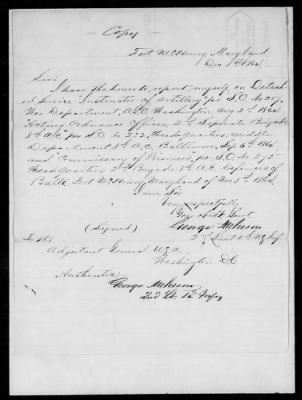 Copy
Fort McHenry, Maryland
Dec 1st 1864
Sir:
I have the honor to report myself on Detach
ed Service Instructor of Artillery per S.O. No 259
War Department, A.G.O. Washington Aug 2d 1864
Acting Ordnance Officer, 2d Separate Brigade
8th A.C. per S.O. No 222, Headquarters Middle
Department 8th A.C. Baltimore, Sep 6th 1864
and Commissary of Prisoners, per S.O. No 275
Headquarters 2d Brigade 8th A.C. Defenses of
Balto. Fort McHenry Maryland of Nov 1864
I am Sir
Very respectfully
Your obdt Servt
(Signed) George
2d Lieut
To the
Adjutant General U.S.A.
Washington D.C.
Authentic:
George
2nd Lt.